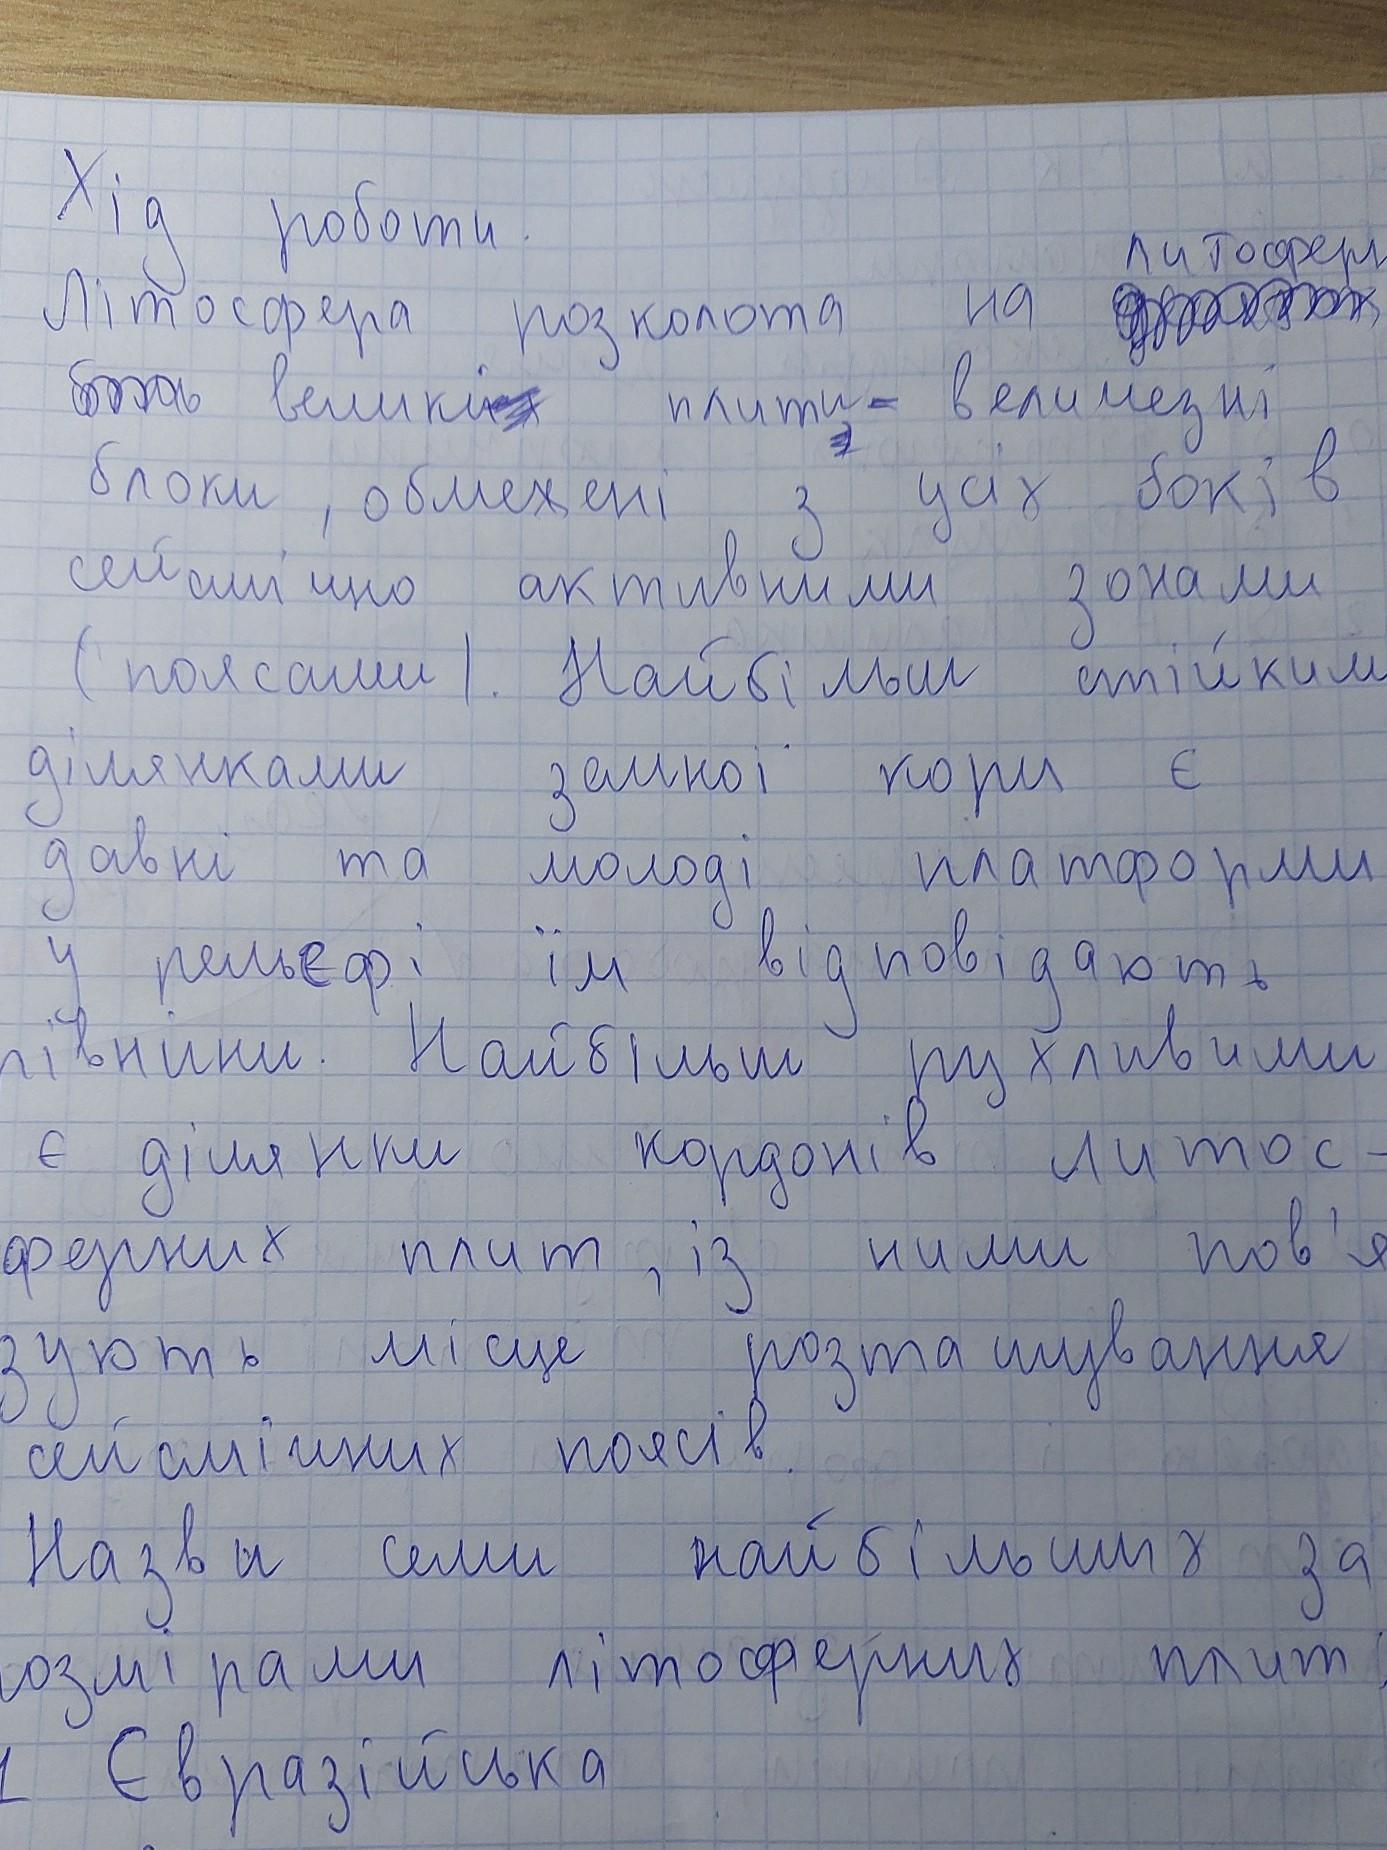 Хід роботи.
литосфер
Літосфера розколота на
великі плити - величезні
блоки, обмежені з усіх боків
сейсмічно активними зонами
(поясами). Найбільш стійким
ділянками земної кори є
давні та молоді платформи
У рельєфі їм відповідають
рівнини. Найбільш рухливими
є ділянки кордонів литос-
ферних плит, із ними пов'я
зують місце розташування
сейсмічних поясів.
Назви семи найбільших за
розмірами літосферних плит:
1 Євразійська